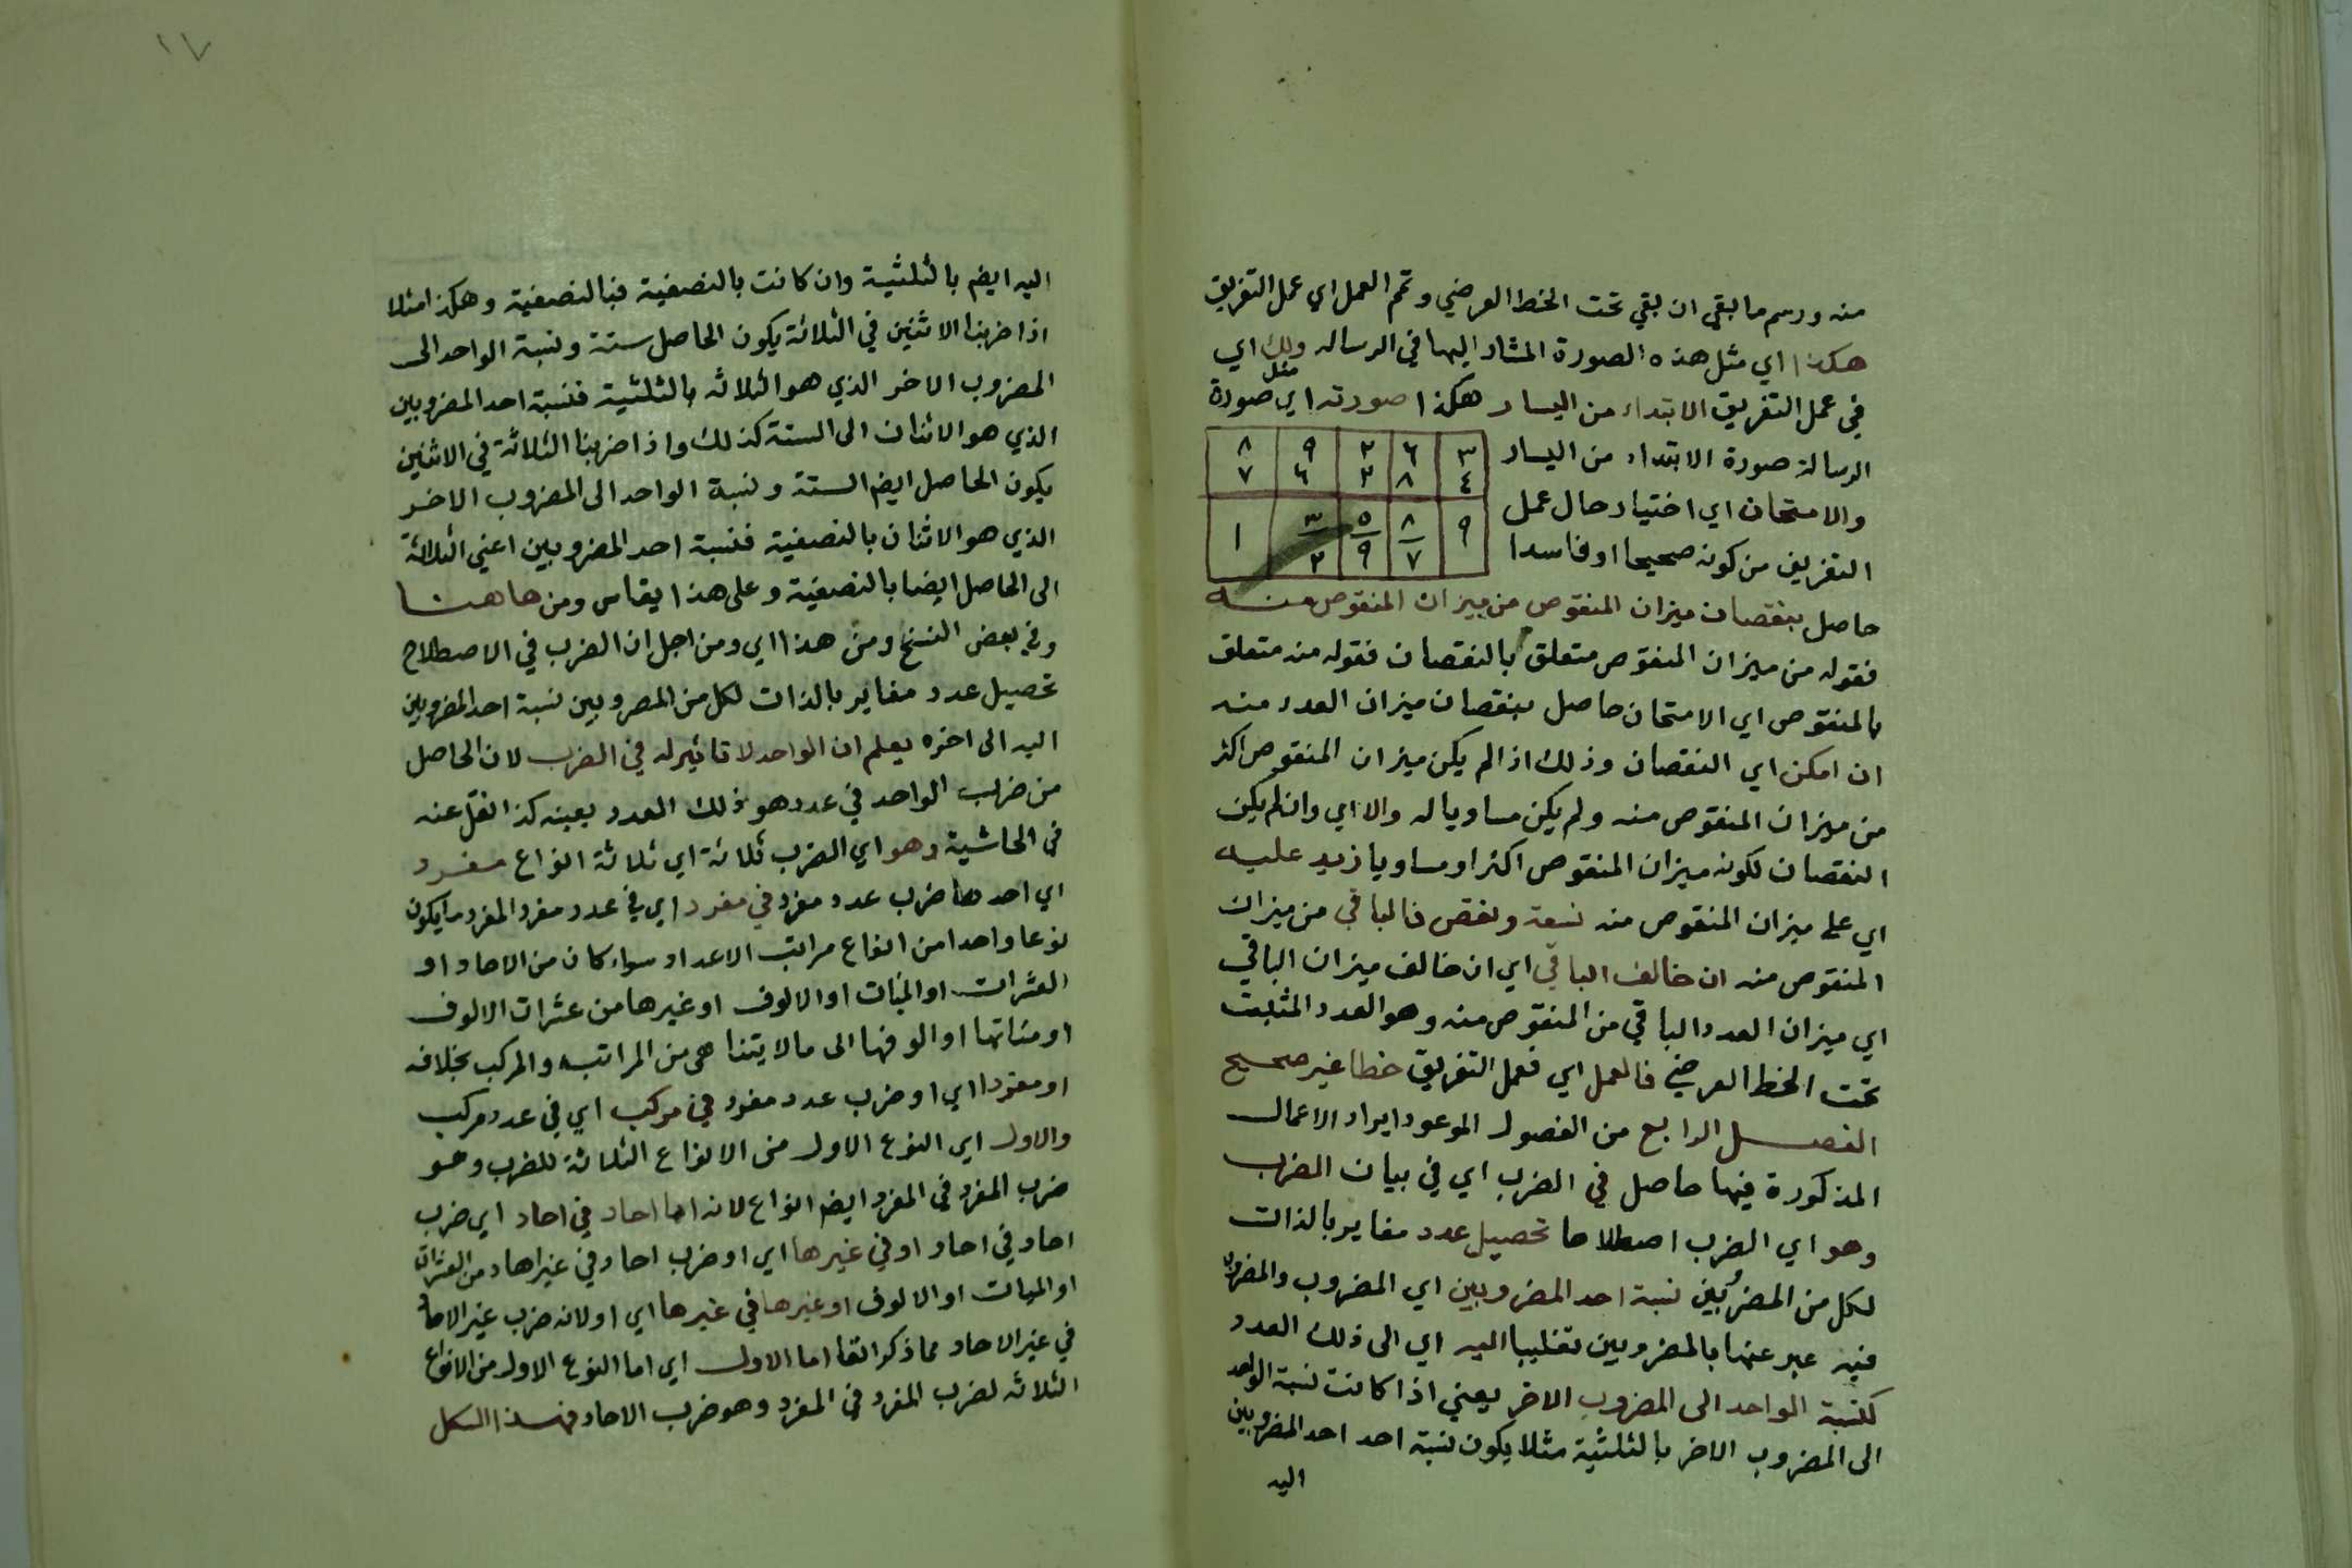 منه ورسم ما بقي ان بقي تحت الخط العرضي وتمم العمل اي عمل التفريق
هكذا اي مثل هذه الصورة المشار اليها في الرساله ولك اي
في عمل التفريق الابتداء من اليسار هكذا صورته اي مثل صورة
الرسالة صورة الابتداء من اليسار
٨ ٩ ٢ ٦ ٣
٧ ٦ ٢ ٨ ٤
١ ٣ ٥ ٨ ٩
٢ ٩ ٧
والامتحان اي اختيار حال عمل
التفريق من كونه صحيحا او فاسدا
حاصل بنقصان ميزان المنقوص من ميزان المنقوص منه
فقوله من ميزان المنقوص متعلق بالنقصان فقوله منه متعلق
بالمنقوص اي الامتحان حاصل بنقصان ميزان العدد منه
ان امكن اي النقصان وذلك اذا لم يكن ميزان المنقوص اكثر
من ميزان المنقوص منه ولم يكن مساويا له والا اي وان لم يكن
النقصان لكونه ميزان المنقوص اكثر او مساويا زيد عليه
اي على ميزان المنقوص منه تسعة ونقص فالباقي من ميزان
المنقوص منه ان خالف الباقي اي ان خالف ميزان الباقي
اي ميزان العدد الباقي من المنقوص منه وهو العدد المثبت
تحت الخط العرضي فالعمل اي فعمل التفريق خطا غير صحيح
الفصل الرابع من الفصول الموعود ايراد الاعمال
المذكورة فيها حاصل في الضرب اي في بيان الضرب
وهو اي الضرب اصطلاحا تحصيل عدد مغاير بالذات
لكل من المضروبين نسبة احد المضروبين اي المضروب والمضروب
فيه عبر عنهما بالمضروبين تغليبا اليه اي الى ذلك العدد
كنسبة الواحد الى المضروب الاخر يعني اذا كانت نسبة الواحد
الى المضروب الاخر بالثلثية مثلا يكون نسبة احد احد المضروبين
اليه
١٧
اليه ايضم بالثلثية وان كانت بالنصفية فبالنصفية وهكذا مثلا
اذا ضربنا الاثنين في الثلاثة يكون الحاصل ستة ونسبة الواحد الى
المضروب الاخر الذي هو الثلاثه بالثلثية فنسبة احد المضروبين
الذي هو الاثنان الى الستة كذلك واذا ضربنا الثلاثة في الاثنين
يكون الحاصل ايضم الستة ونسبة الواحد الى المضروب الاخر
الذي هو الاثنان بالنصفية فنسبة احد المضروبين اعني الثلاثة
الى الحاصل ايضا بالنصفية وعلى هذا يقاس ومن هاهنا
وفي بعض النسخ ومن هذا اي ومن اجل ان الضرب في الاصطلاح
تحصيل عدد مغاير بالذات لكل من المضروبين نسبة احد المضروبين
اليه الى اخره يعلم ان الواحد لا تاثير له في الضرب لان الحاصل
من ضرب الواحد في عدد هو ذلك العدد بعينه كذا نقل عنه
في الحاشية وهو اي الضرب ثلاثة اي ثلاثة انواع مفرد
اي احدها ضرب عدد مفرد في مفرد اي في عدد مفرد المفرد ما يكون
نوعا واحدا من انواع مراتب الاعداد سواء كان من الاحاد او
العشرات او الميات او الالوف او غيرها من عشرات الالوف
او مئاتها او الوفها الى ما لا يتناهى من المراتب والمركب بخلافه
او مفردا اي او ضرب عدد مفرد في مركب اي في عدد مركب
والاول اي النوع الاول من الانواع الثلاثة للضرب وهو
ضرب المفرد في المفرد ايضم انواع لانه اما احاد في احاد اي ضرب
احاد في احاد او في غيرها اي او ضرب احاد في غير احاد من العشرات
او الميات او الالوف او غيرها في غيرها اي او لانه ضرب غير الاحاد
في غير الاحاد مما ذكر انفا اما الاول اي اما النوع الاول من الانواع
الثلاثه لضرب المفرد في المفرد وهو ضرب الاحاد فهذا الشكل